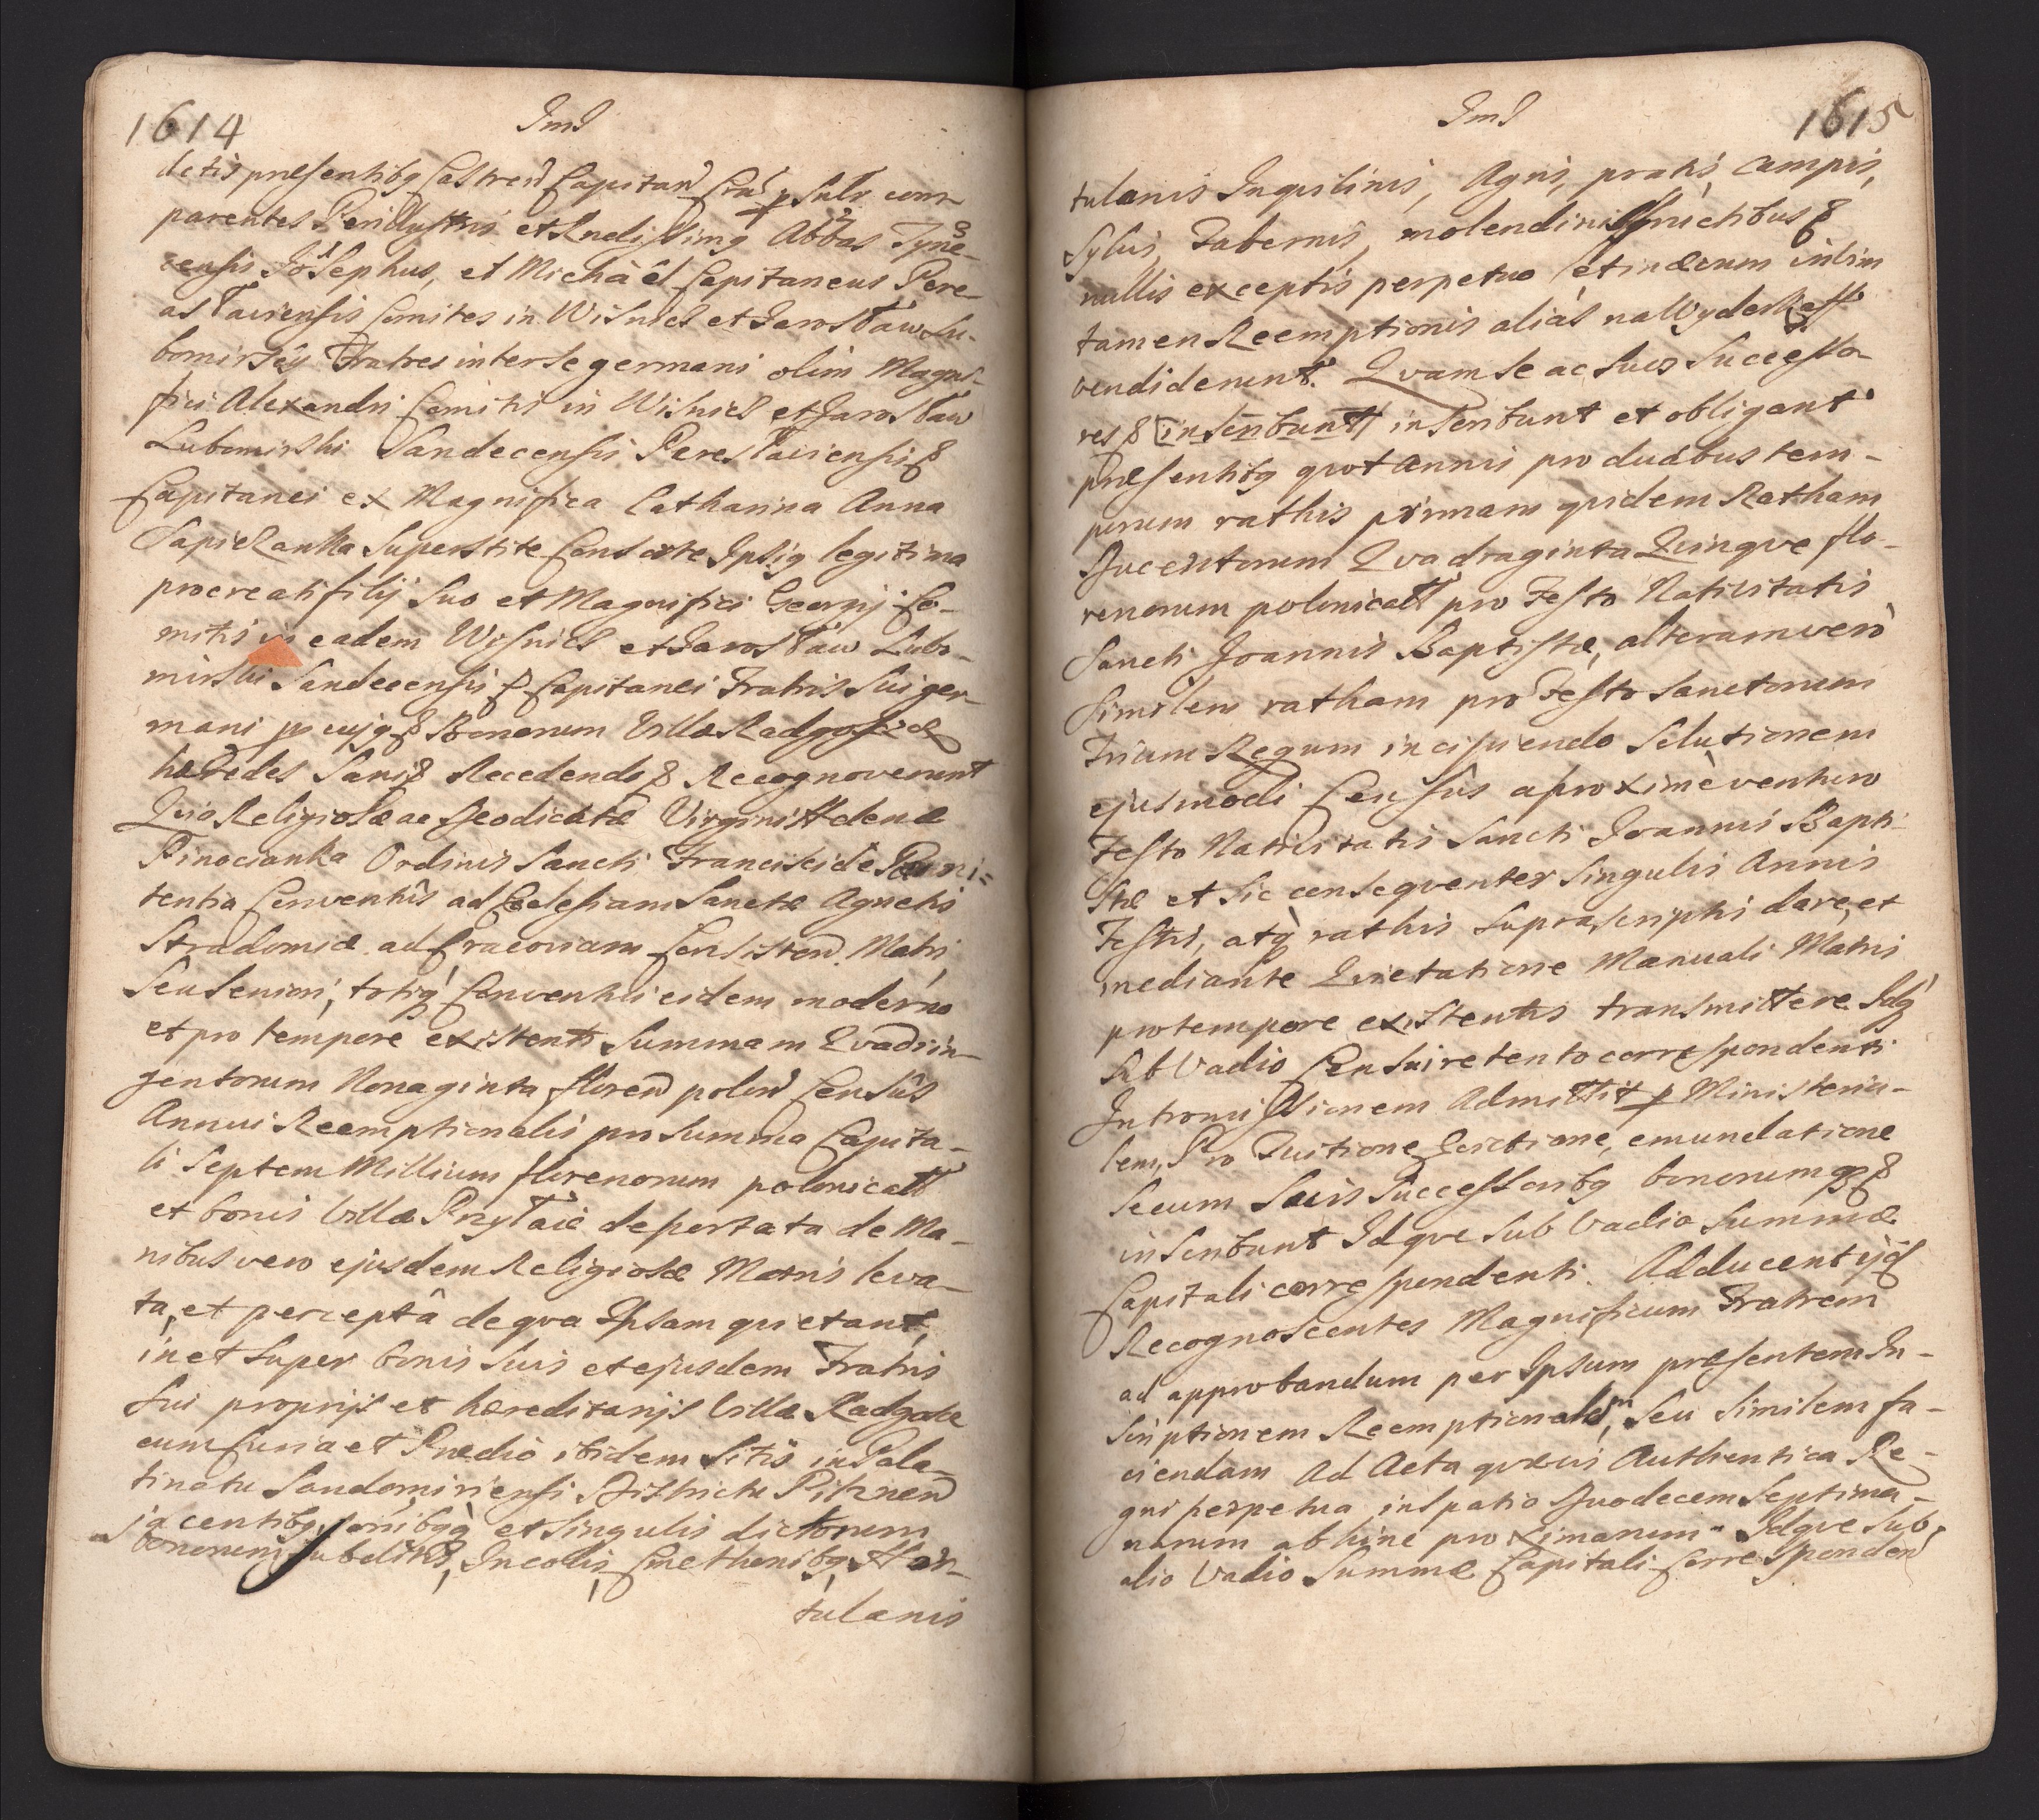 1614
Ind
detis præsentibg Castren Capitan Crac p Sulr com
parentes Perillustris et Rndissimg Abbas Tyne-
censis Josephus, et Michaël Capitaneus Pere-
aslaviensis Comites in Wisnicz et Jarosław Lu-
bomirscy Fratres inter se germani olim Magni-
fici Alexandri Comitis in Wisnicz et Jarosław
Lubomirski Sandecensis Pereslaviensis &
Capitanei ex Magnifica Catharina Anna
Sapiezanka Superstite Consorte Ipsig legitima
procreati filij Suo et Magnifici Georgij Co-
mitis in eadem Wisnicz et Jarosław Lubo-
mirski Sandecensis & Capitanei Fratris Sui ger-
mani pcujg & Bonorum Villæ Radgoszcz
hæredes Sani & Recedendo & Recognoverunt
Quia Religiosæ ac Deodicatæ Virgini Helenæ
Pinocianka Ordinis Sancti Francisci de Pæni=
tentia Conventûs ad Ecclesiam Sanctæ Agnetis
Stradomiæ ad Cracoviam Consisten. Matri
Seu Seniori, totig Conventui eidem moderno
et pro tempore existenti Summam Qvadrin-
gentorum Nonaginta floren polon Censûs
Annui Reemptionalis pro Summa Capita-
li Septem Millium florenorum polonicall
et bonis Villæ Przyłaie deportata de Ma-
nibus vero ejusdem Religiosæ Matris leva-
ta, et perceptâ de qva Ipsam quietant,
in et Super bonis Suis et ejusdem Fratris
Sui proprijs et hæreditarijs Villæ Radgoscz
cum Curia et Prædio ibidem Sitis in Pala-
tinatu Sandomiriensi Districtu Pilznen
jacentibg, omibgq et Singulis dictorum
bonorum Subditis, Incolis, Cmethonibg, Hor-
tulanis
Ind
1615
tulanis Inquilinis, Agris, pratis, campis,
Sylvis, Tabernis, molendinis fructibus &
nullis exceptis perpetuo et in ævum in vim
tamen Reemptionis aliàs na Wyderkeff
vendiderunt. Qvam Se ac Suos Successo-
res & [inscribunt] inscribunt et obligant
præsentibg qvotannis pro duabus tem-
porum rathis primam qvidem Ratham
Ducentorum Qvadraginta Qvinqve flo-
renorum polonicall pro Festo Nativitatis
Sancti Joannis Baptistæ, alteram verò
Similem ratham pro Festo Sanctorum
Trium Regum incipiendo Solutionem
ejusmodi Censûs a proximè venturo
Festo Nativitatis Sancti Joannis Bapti-
stæ et Sic conseqventer Singulis Annis
Festis, atq rathis Suprascriptis dare, et
mediante Qvietatione Manuali Matris
pro tempore existentis transmittere Idq
Sub Vadio Censui retento correspondenti
Intromissionem Admittit p Ministeria-
lem, Pro Tuitione Evictione, emundatione
Secum Suis Successoribg bonorumqg &
inscribunt Idqve Sub Vadio Summæ
Capitali correspondenti. Adducent ijd
Recognoscentes Magnificum Fratrem
ad approbandum per Ipsum præsentem In-
scriptionem Reemptionalem, Seu Similem fa-
ciendam Ad Acta qvævis Authentica Re-
gni perpetua in Spatio Duodecem Septima-
narum abhinc proximarum. Idqve Sub
alio Vadio Summæ Capitali Corresponden